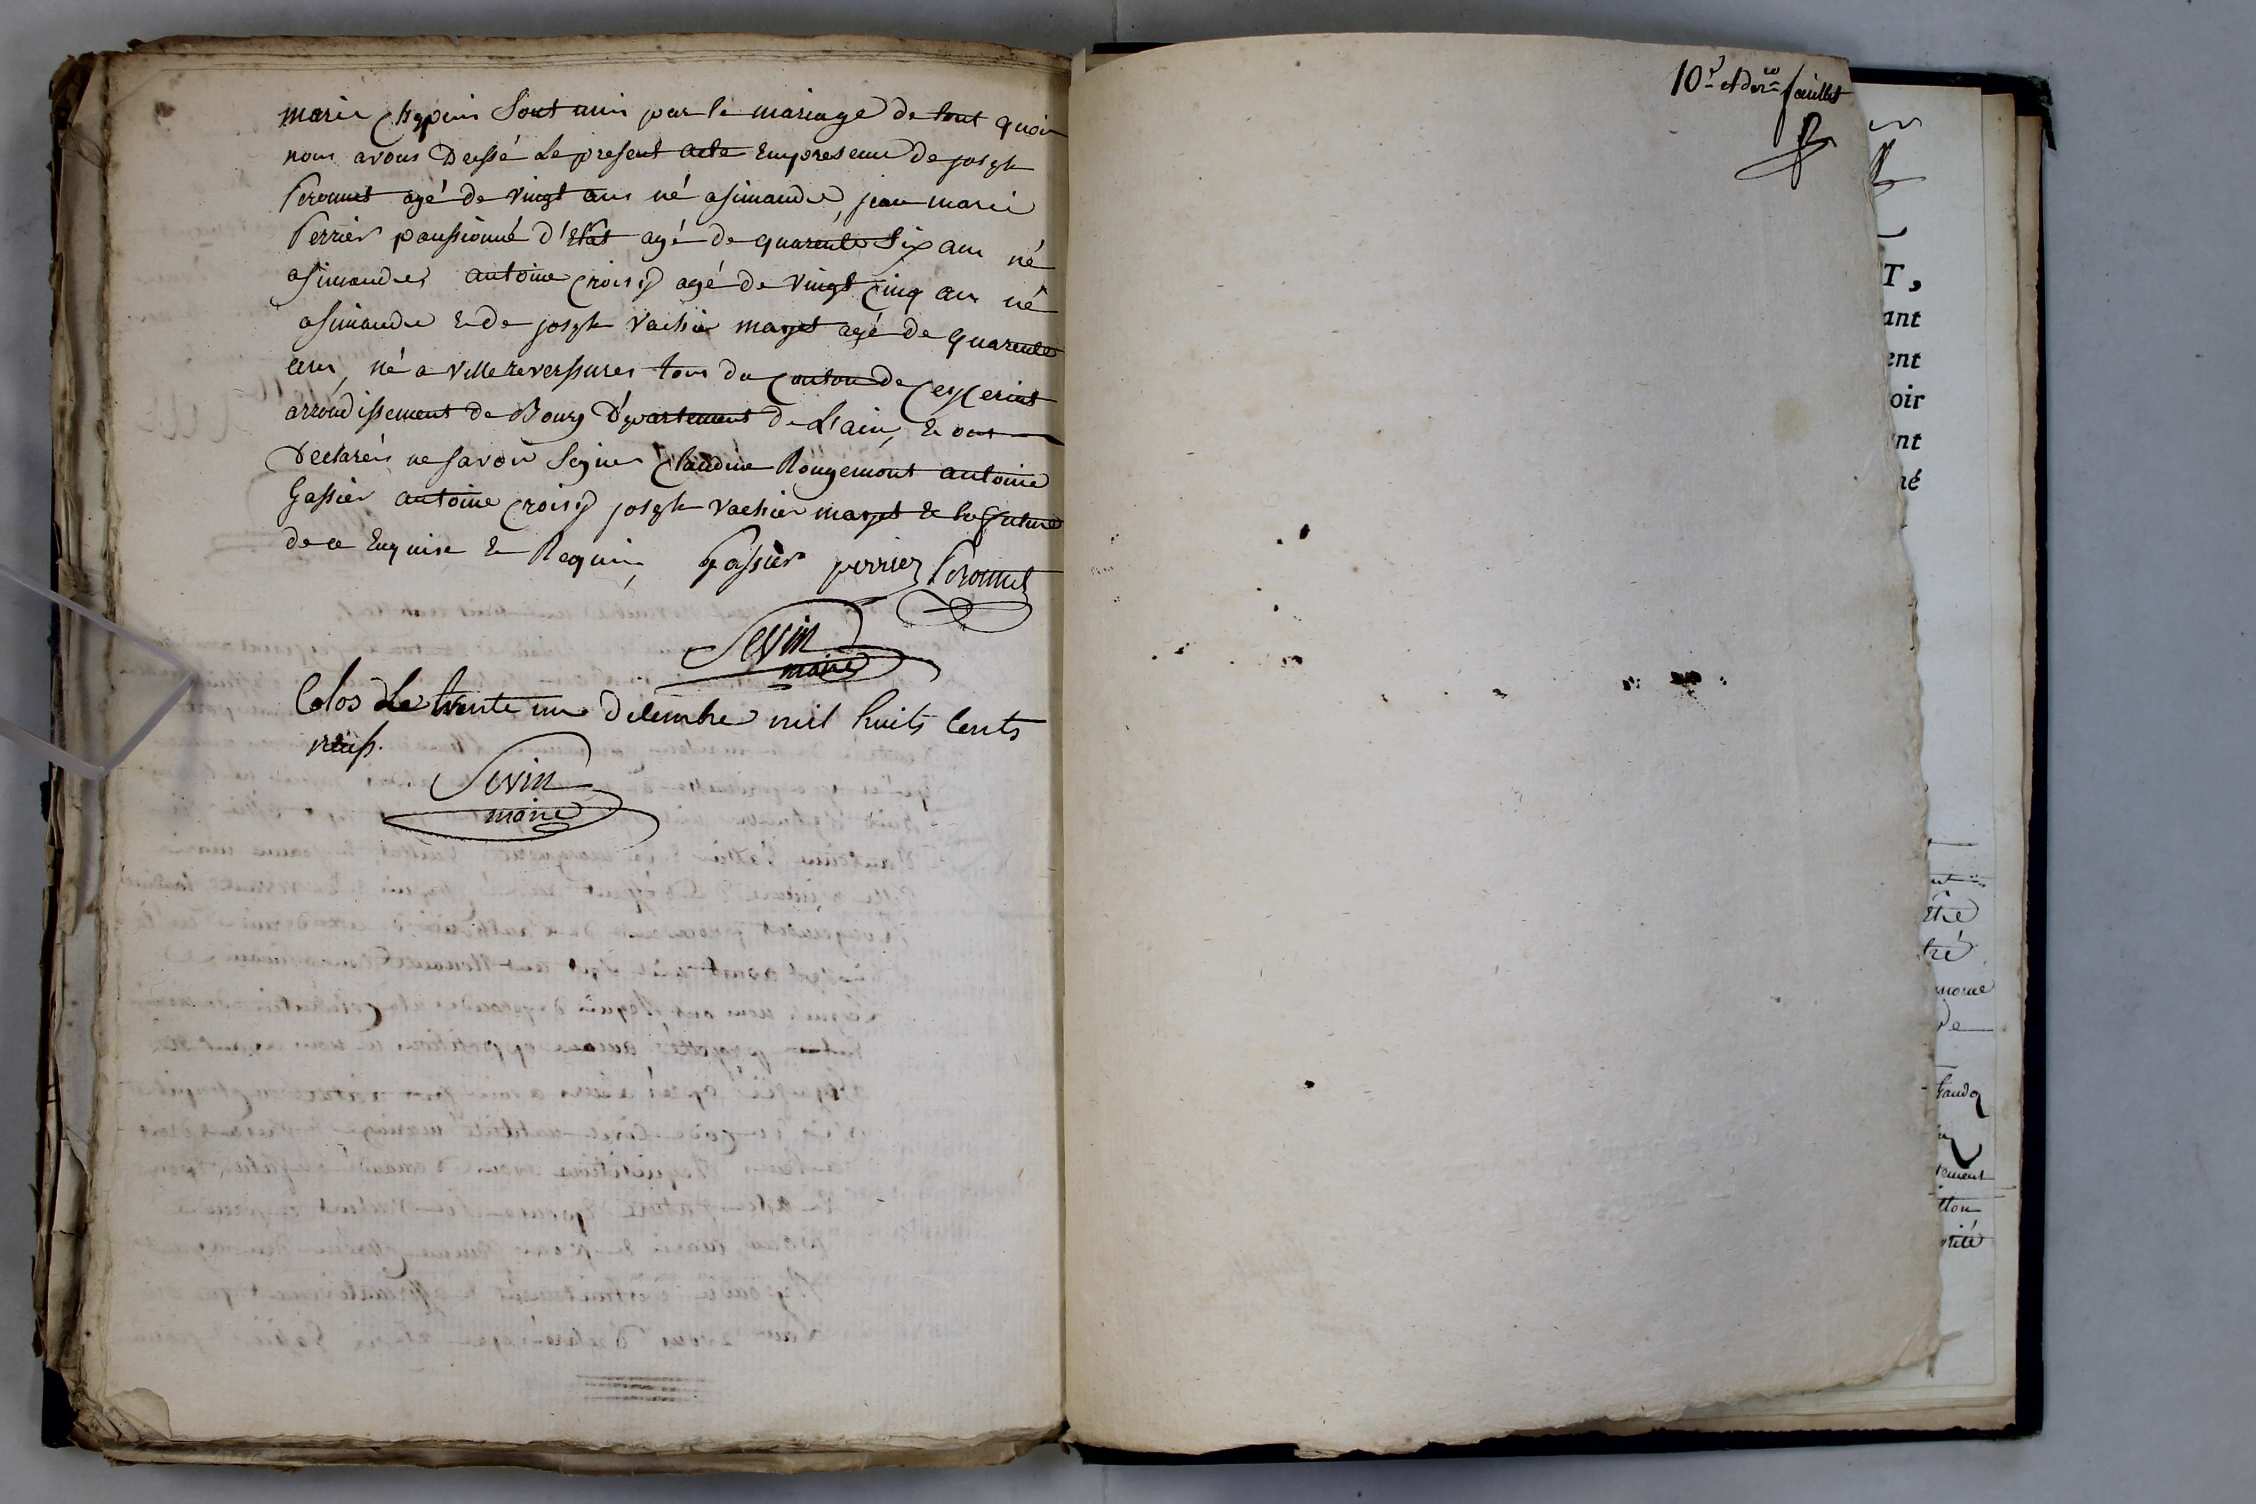 marie chapuis sont unis par le mariage de tout quoi
nous avons Dressé Le present acte Empresence de joseph
Peronnet agé de vingt ans né asimandre, jean marie
Perrier pansionné d'Etat agé de quarente six ans né
asimandres antoine Croisy agé de vingt Cinq ans né
asimandre & de joseph vachier maret agé de quarente
ans, né a villereverssures tous du Canton de Ceyzeriat
arrondissement de Bourg Département de L'ain, & ont
Declarés ne savoir Signer Claudine Rougemont antoine
Gassier antoine Croisy joseph vachier & la future
de ce Enquise & Requis, Gassier perrier Peronnet
Sevin
maire
Clos Le trente un Decembre mil huits Cents
neuf.
Sevin
maire
10e et der feuillet
T,
ant
ent
oir
nt
né
être
tré
De
tement